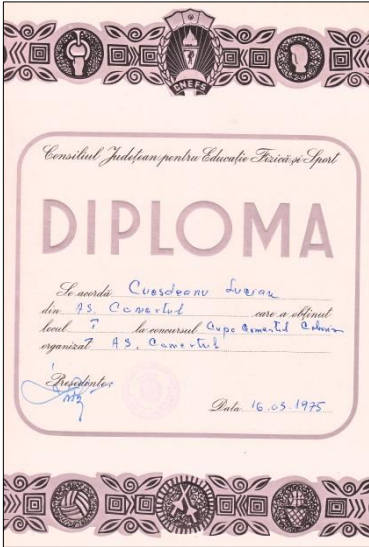 CNEFS
Consiliul Județean pentru Educație Fizică și Sport
DIPLOMA
Se acordă Cuesdeanu Lucian
din A.S. Comerțul care a obținut
locul I la concursul Cupa Comerțul
organizat A.S. Comerțul
Președinte,
Data 16.03.1975